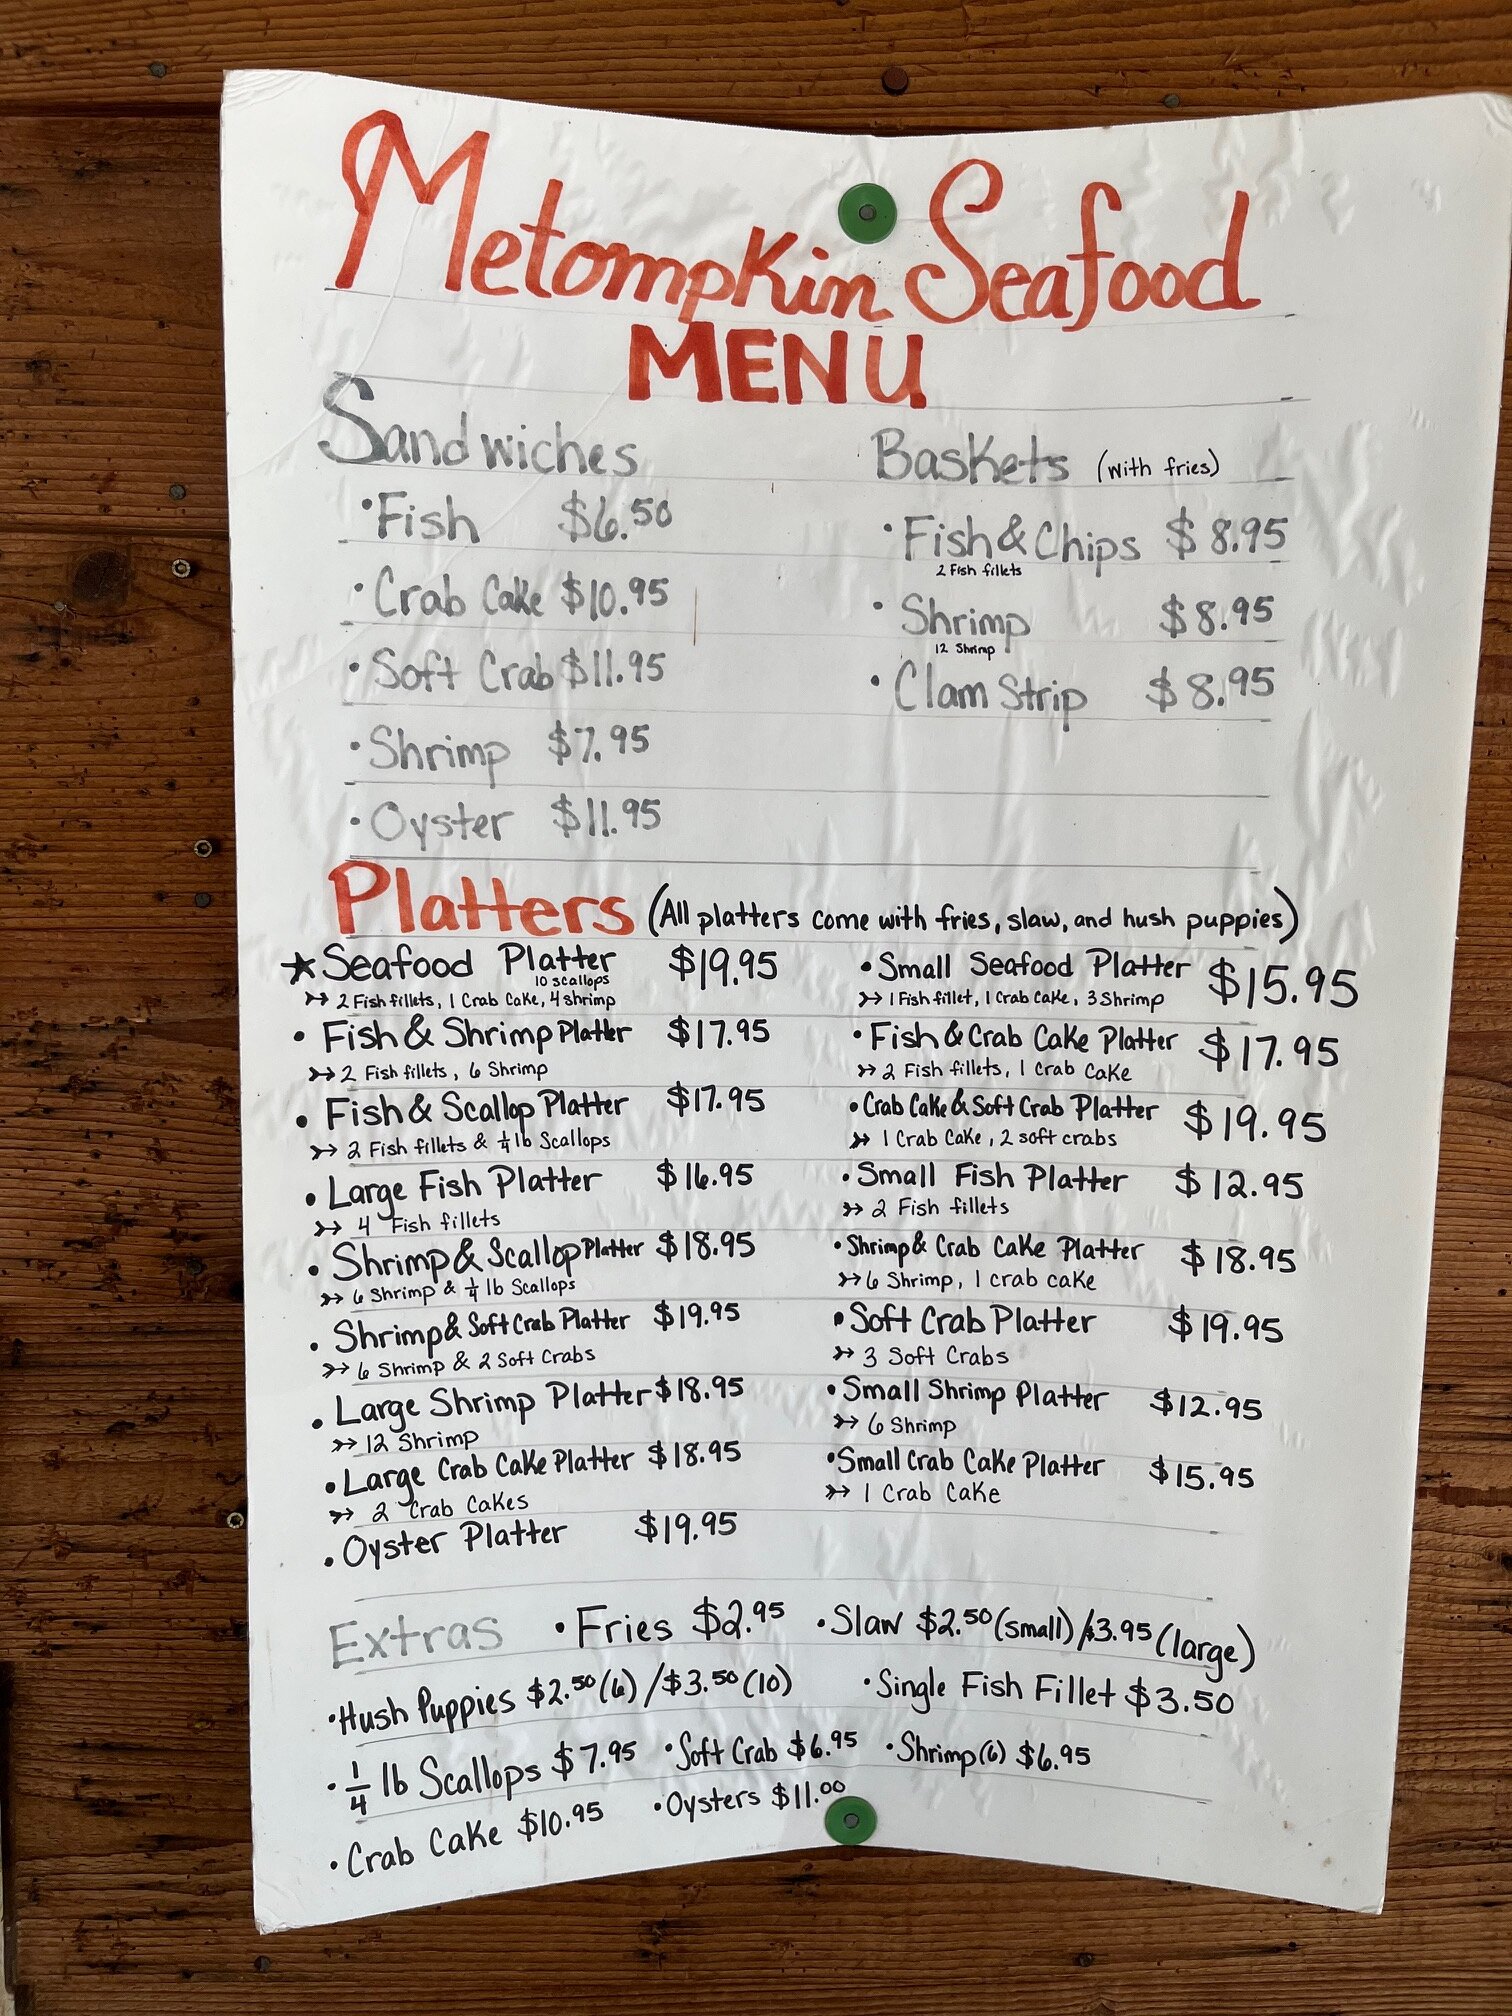 Metompkin Seafood
MENU
Sandwiches
• Fish $6.50
• Crab Cake $10.95
• Soft Crab $11.95
• Shrimp $7.95
• Oyster $11.95
Baskets (with fries)
• Fish & Chips $8.95
2 Fish fillets
• Shrimp $8.95
12 Shrimp
• Clam Strip $8.95
Platters (All platters come with fries, slaw, and hush puppies)
★ Seafood Platter $19.95
10 scallops
↣ 2 Fish fillets, 1 Crab Cake, 4 shrimp
• Fish & Shrimp Platter $17.95
↣ 2 Fish fillets, 6 Shrimp
• Fish & Scallop Platter $17.95
↣ 2 Fish fillets & ¼ lb Scallops
• Large Fish Platter $16.95
↣ 4 Fish fillets
• Shrimp & Scallop Platter $18.95
↣ 6 Shrimp & ¼ lb Scallops
• Shrimp & Soft Crab Platter $19.95
↣ 6 Shrimp & 2 Soft Crabs
• Large Shrimp Platter $18.95
↣ 12 Shrimp
• Large Crab Cake Platter $18.95
↣ 2 Crab Cakes
• Oyster Platter $19.95
• Small Seafood Platter $15.95
↣ 1 Fish fillet, 1 Crab Cake, 3 Shrimp
• Fish & Crab Cake Platter $17.95
↣ 2 Fish fillets, 1 Crab Cake
• Crab Cake & Soft Crab Platter $19.95
↣ 1 Crab Cake, 2 soft crabs
• Small Fish Platter $12.95
↣ 2 Fish fillets
• Shrimp & Crab Cake Platter $18.95
↣ 6 Shrimp, 1 crab cake
• Soft Crab Platter $19.95
↣ 3 Soft Crabs
• Small Shrimp Platter $12.95
↣ 6 Shrimp
• Small Crab Cake Platter $15.95
↣ 1 Crab Cake
Extras • Fries $2.95 • Slaw $2.50 (small) / $3.95 (large)
• Hush Puppies $2.50 (6) / $3.50 (10) • Single Fish Fillet $3.50
• ¼ lb Scallops $7.95 • Soft Crab $6.95 • Shrimp (6) $6.95
• Crab Cake $10.95 • Oysters $11.00